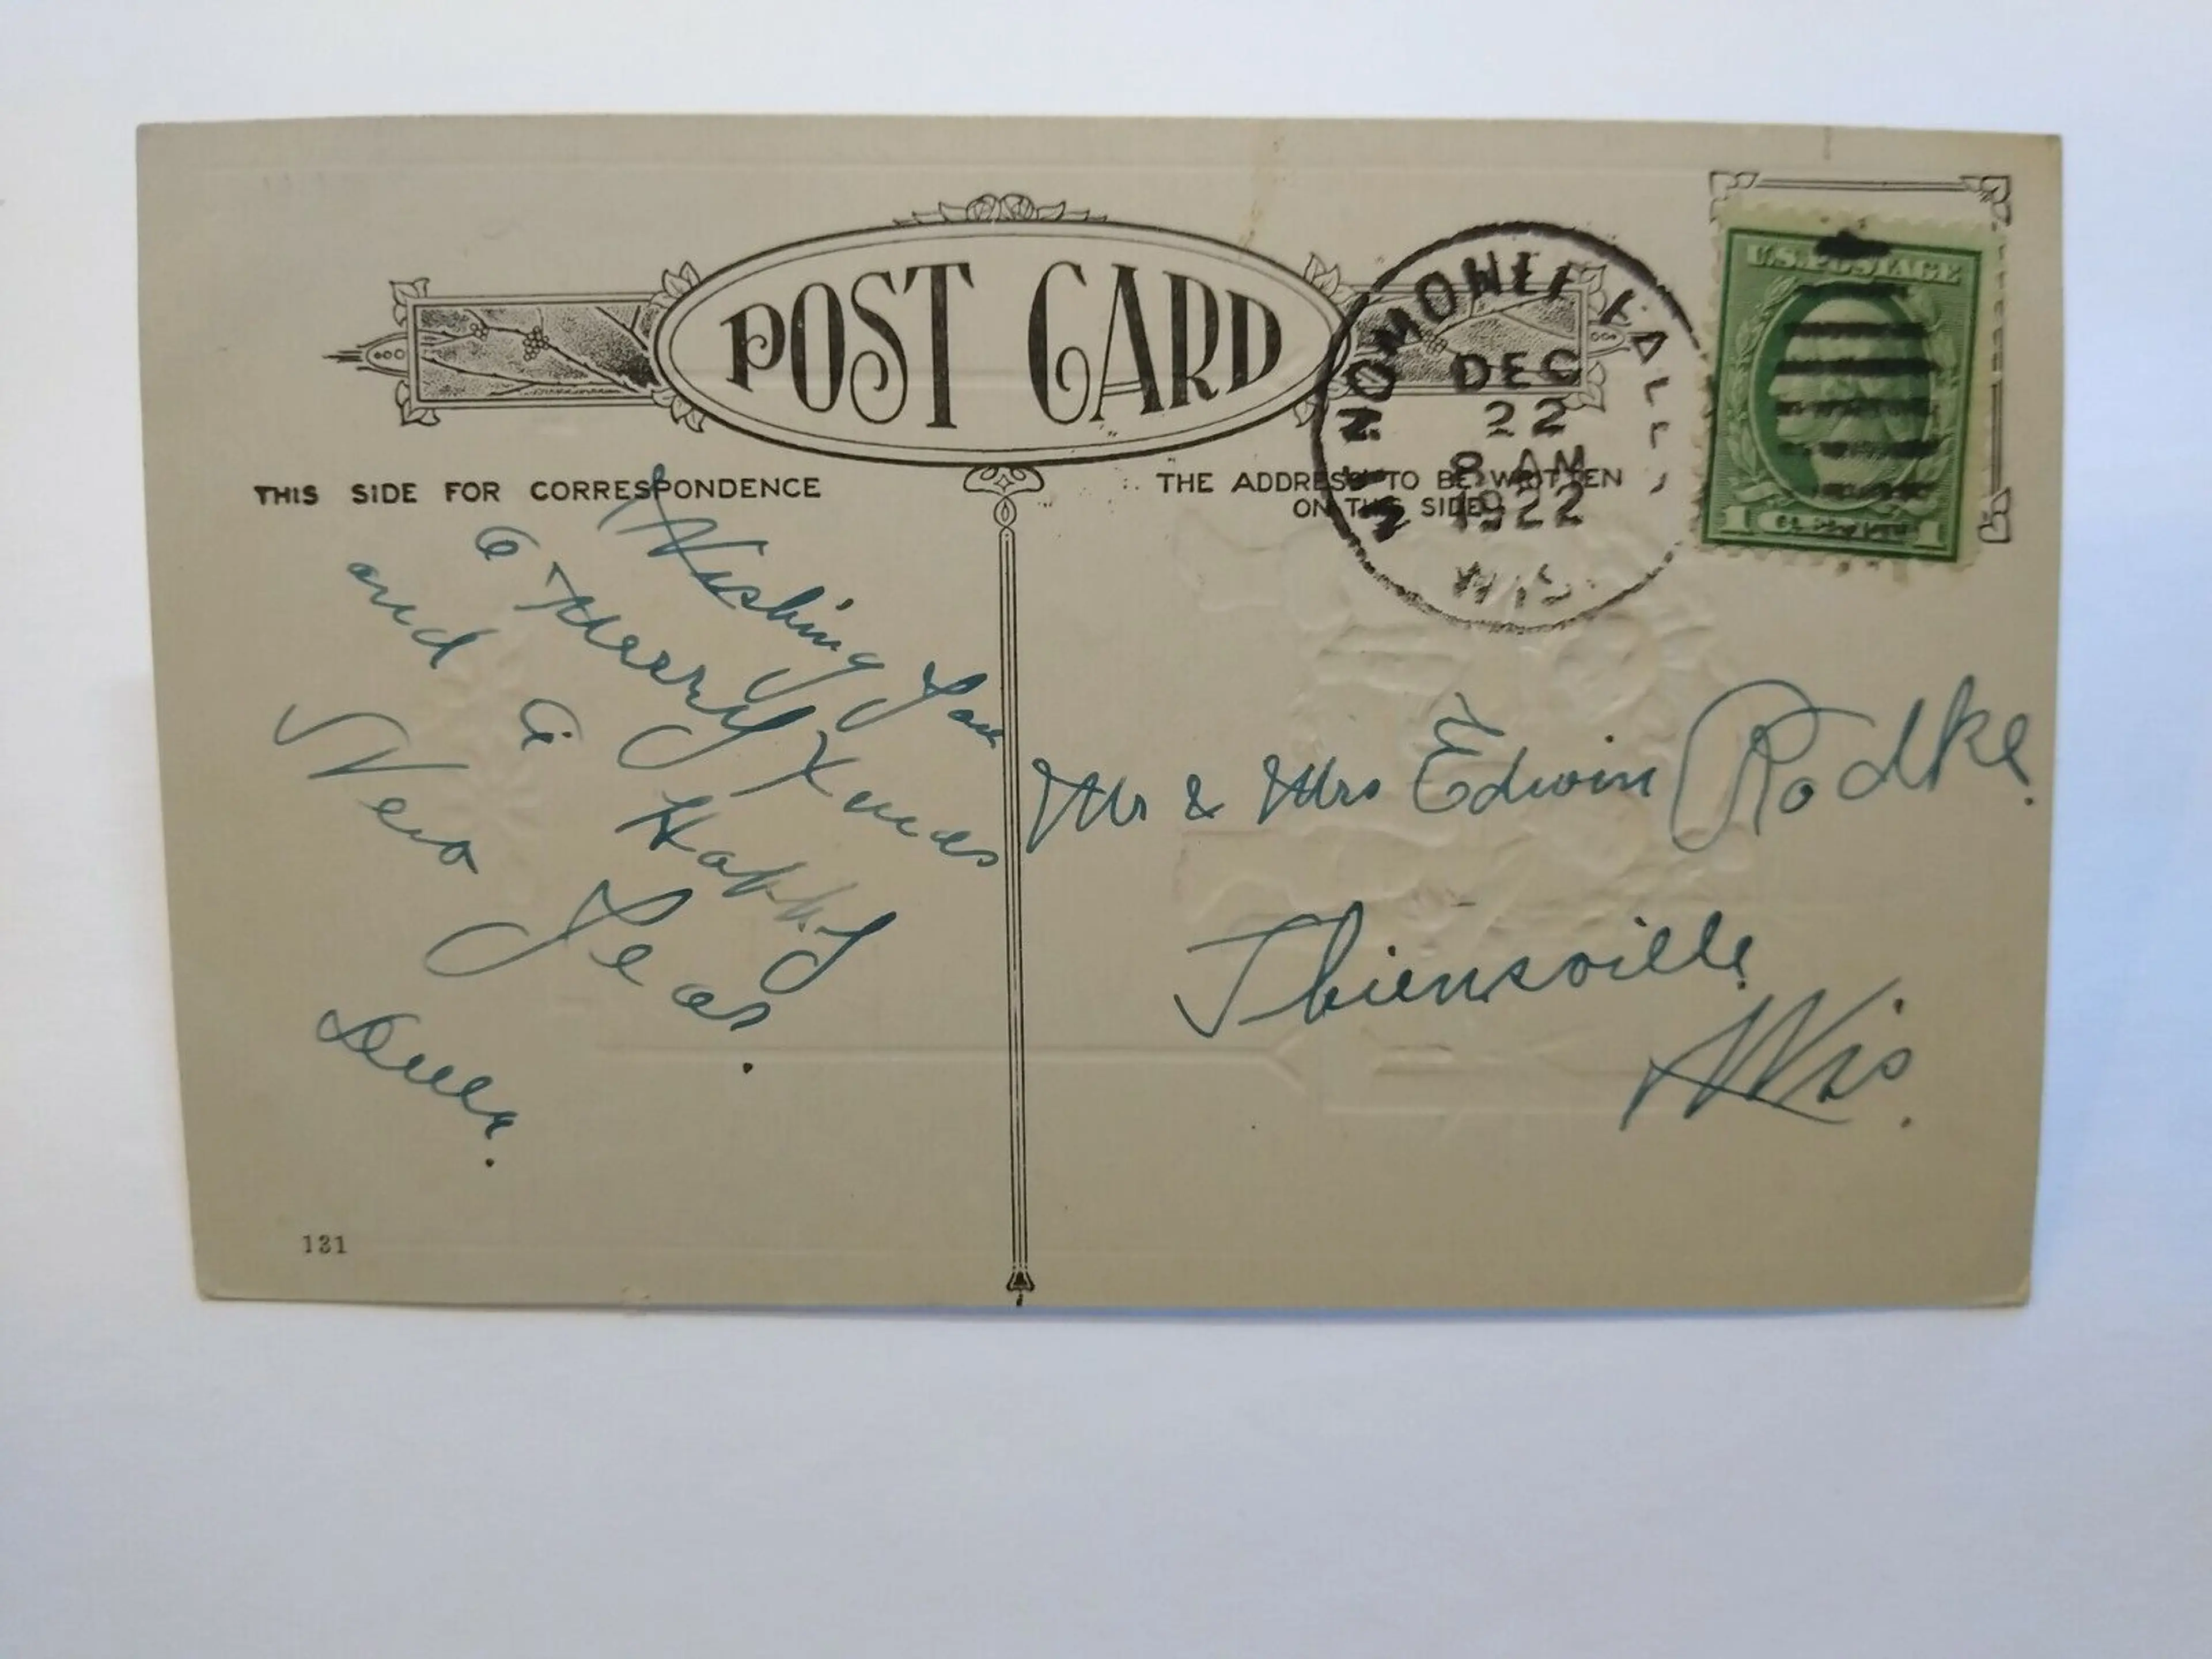 POST CARD
THIS SIDE FOR CORRESPONDENCE
Wishing You
a Merry Xmas
and a Happy
New Year.
131
THE ADDRESS TO BE WRITTEN
ON THIS SIDE
MENOMONEE FALLS
DEC
22
8 AM
1922
WIS.
U.S. POSTAGE
1 CENT 1
Mr & Mrs Edwin Radke.
Thiensville
Wis.